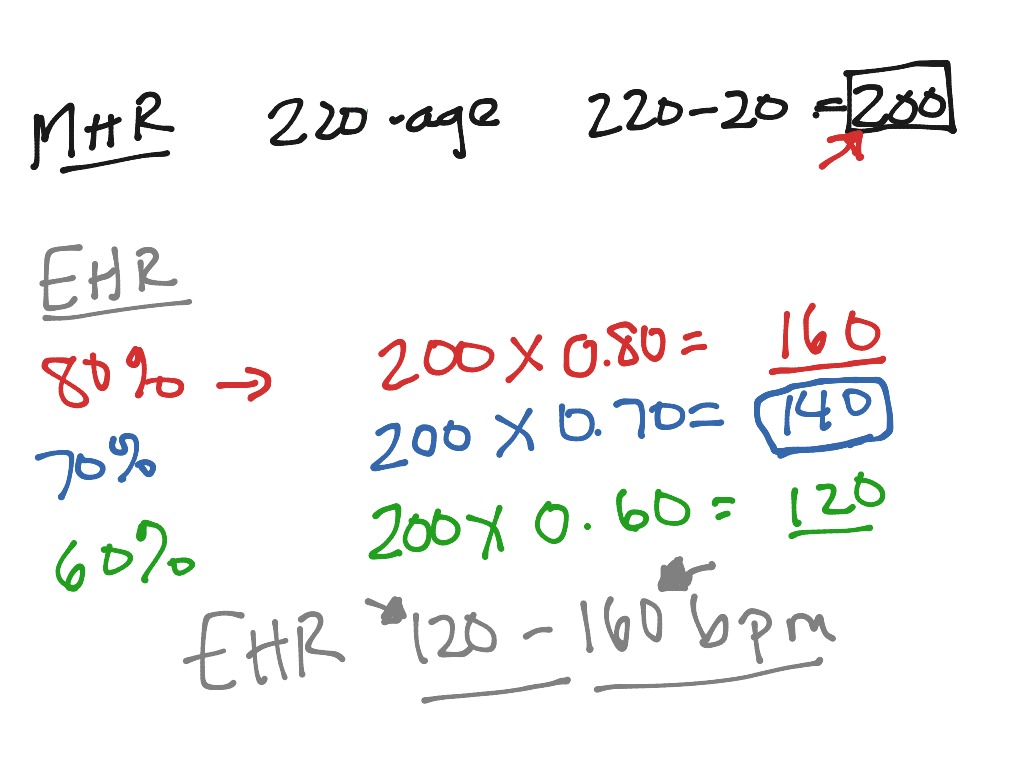 MHR 220 -age 220-20 = 200
EHR
80% → 200 X 0.80 = 160
70% 200 X 0.70 = 140
60% 200 X 0.60 = 120
EHR 120 - 160 bpm